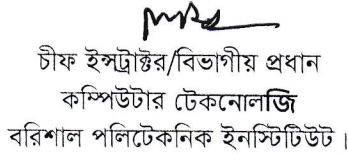 চীফ ইন্সট্রাক্টর/বিভাগীয় প্রধান
কম্পিউটার টেকনোলজি
বরিশাল পলিটেকনিক ইনস্টিটিউট।